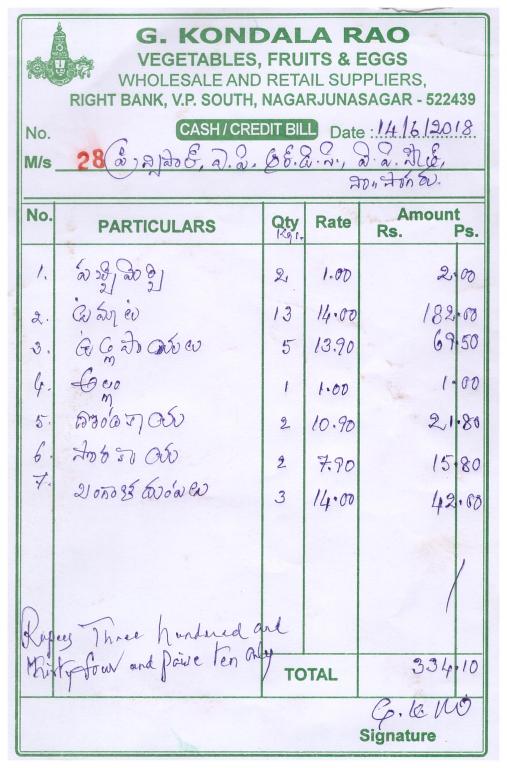 G. KONDALA RAO
VEGETABLES, FRUITS & EGGS
WHOLESALE AND RETAIL SUPPLIERS,
RIGHT BANK, V.P. SOUTH, NAGARJUNASAGAR - 522439
No. CASH / CREDIT BILL Date : 14/6/2018
M/s 28 ప్రిన్సిపాల్, ఏ.పి. ఆర్.డి.సి., వి.పి.సౌత్,
నా.సాగరు.
No. PARTICULARS Qty Rate Amount
Kgs. Rs. Ps.
1. పచ్చిమిర్చి 2 1.00 2.00
2. టమాట 13 14.00 182.00
3. ఉల్లిపాయలు 5 13.90 69.50
4. అల్లం 1 1.00 1.00
5. దొండకాయ 2 10.90 21.80
6. సొరకాయ 2 7.90 15.80
7. బంగాళదుంపలు 3 14.00 42.00
Rupees Three hundred and
thirty four and paise ten only
TOTAL 334.10
Signature